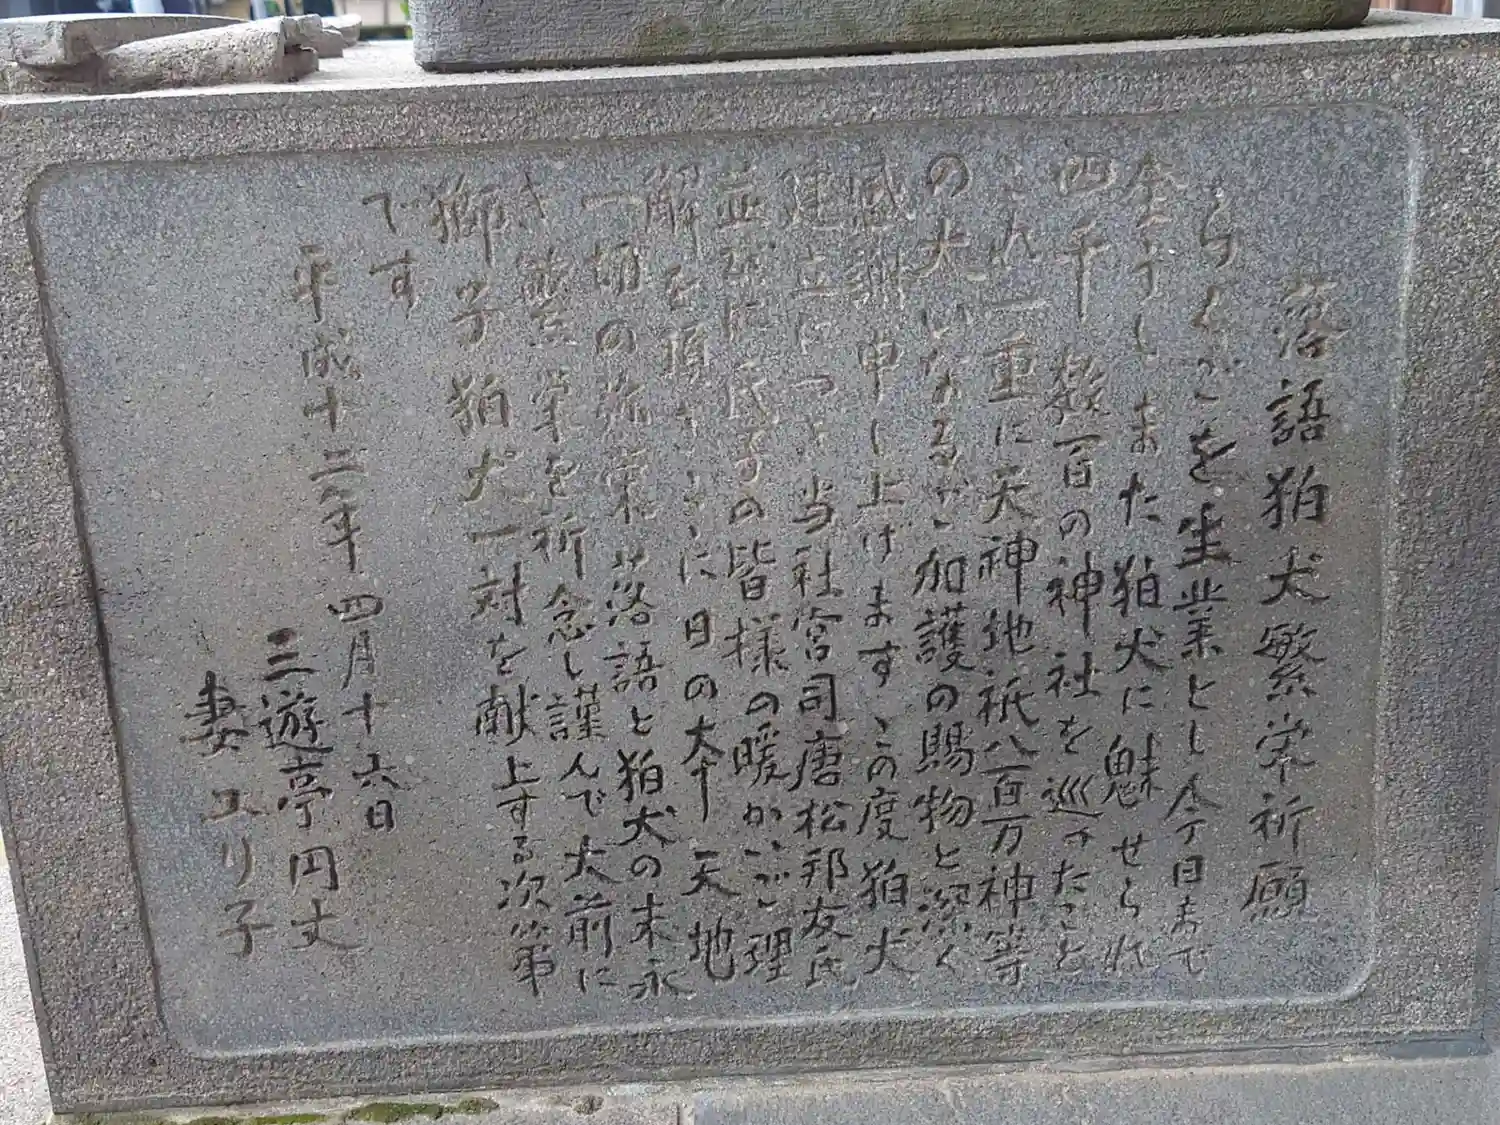 落語狛犬繁栄祈願
らくごを生業とし今日まで
幸しました狛犬に魅せられ
四千数百の神社を巡ったこと
これ一重に天神地祇八百万神等
の大いなるが加護の賜物と深く
感謝申し上げますこの度狛犬
建立につき当社宮司唐松邦友氏
並びに氏子の皆様の暖かいご理
解を頂きここに日の本 天地
一切の弥栄 落語と狛犬の末永
き繁栄を祈念し謹んで大前に
獅子狛犬一対を献上する次第
です
平成十二年四月十六日
三遊亭円丈
妻 ユリ子